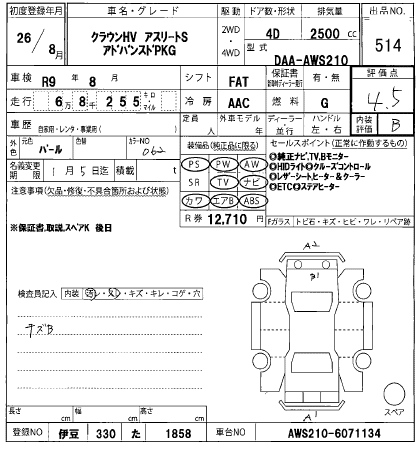 初度登録年月 車名・グレード 駆動 ドア数・形状 排気量 出品NO.
26/8月 クラウンHV アスリートS アドバンストPKG 2WD・4WD 4D 2500cc 514
型式 DAA-AWS210
車検 R9年 8月 シフト FAT 保証書 有・無 評価点 4.5
走行 6万8千255キロ・マイル 冷房 AAC 燃料 G
車歴 自家用・レンタ・事業用( ) 定員 人 外車モデル 年 ディーラー・並行 ハンドル 左・右 内装評価 B
外色 元色 パール 色替 カラーNO 062 装備品(純正品に限る) セールスポイント(正常に作動するもの)
名義変更期限 1月5日迄 積載 t PS PW AW ◎純正ナビ,TV,Bモニター
注意事項(欠品・修復・不具合箇所および状態) SR TV ナビ ◎HIDライト◎クルーズコントロール
◎レザーシートヒーター&クーラー
カワ エアB ABS ◎ETC◎ステアヒーター
※保証書,取説,スペアK 後日 R券 12,710円 Fガラス トビ石・キズ・ヒビ・ワレ・リペア跡
A2
B1
検査員記入 内装 汚レ・スレ・キズ・キレ・コゲ・穴
キズB
スペア
A1
長さ cm 幅 cm 高さ cm
登録NO 伊豆 330 た 1858 車台NO AWS210-6071134